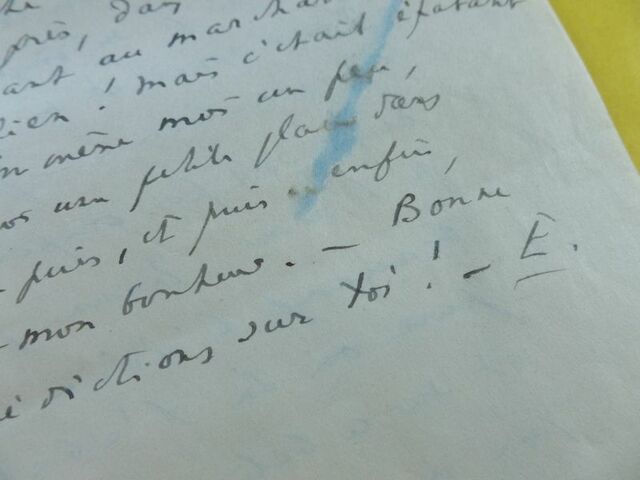 près, dans
ant au marcha
ien ! mais c'était épatant
n même mos un peu,
os un petit plan dans
puis, et puis enfin,
mon bonheur. — Bonne
édictions sur toi ! — E.